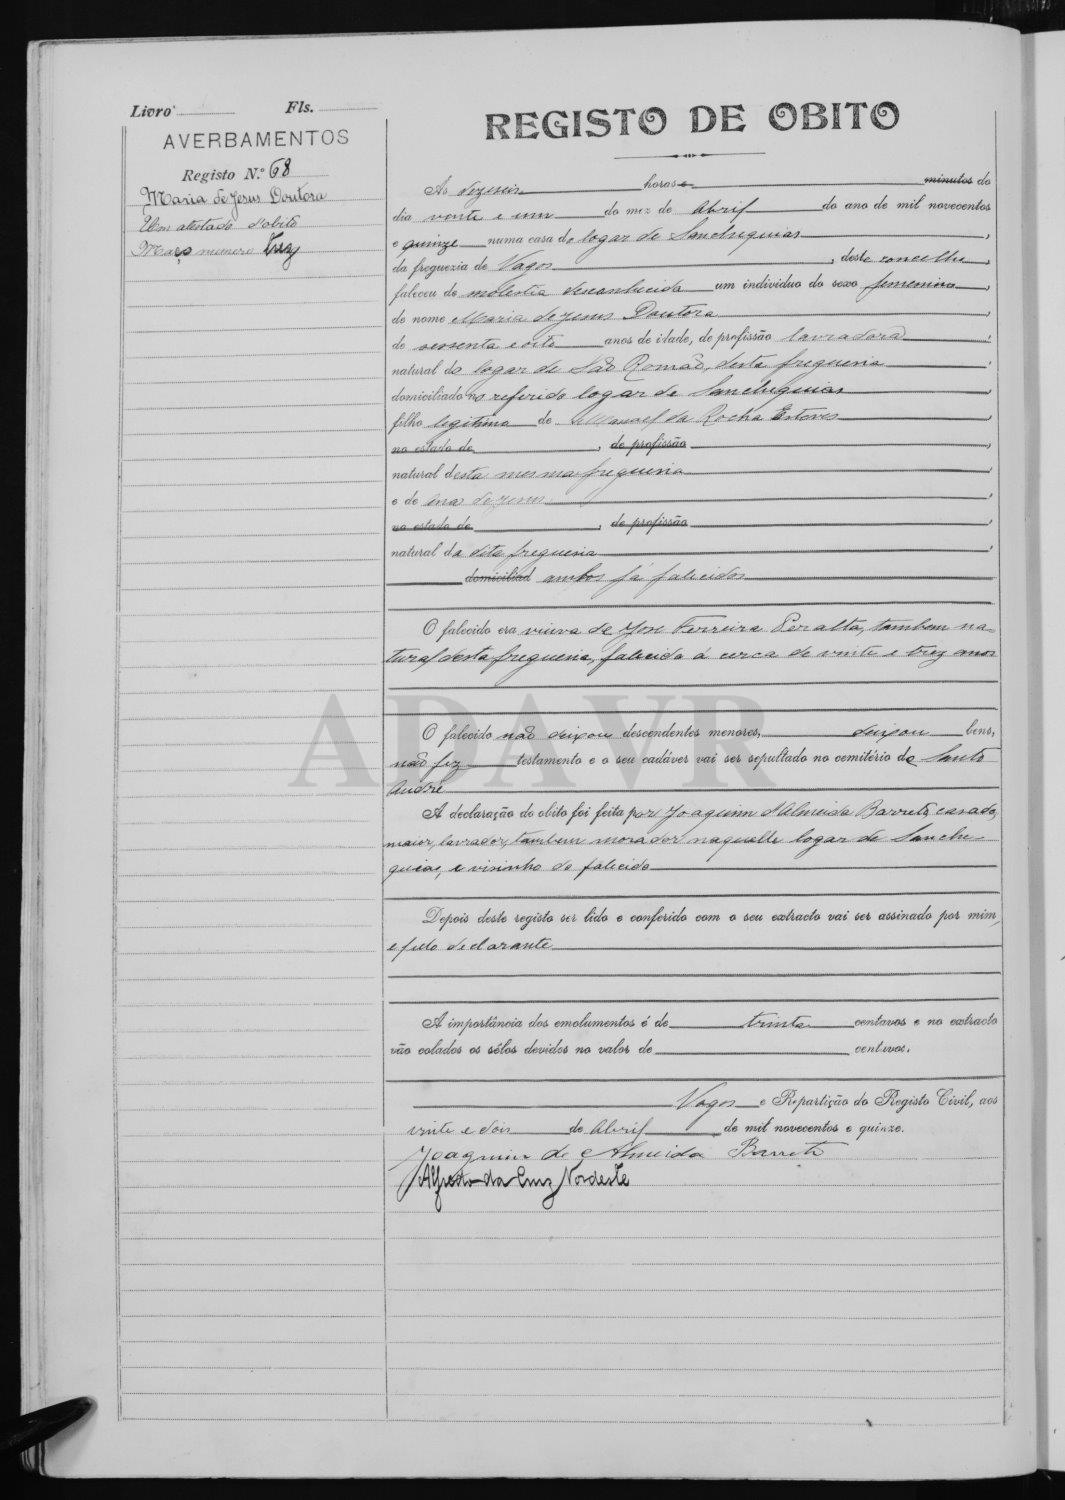 Livro Fls.
AVERBAMENTOS
Registo N.º 68
Maria de Jesus Doutora
Um atestado d'obito
Maço numero trez
REGISTO DE OBITO
Ás dezeseis horas e minutos do
dia vinte e um do mez de Abril do ano de mil novecentos
e quinze numa casa do logar de Sanchequias,
da freguezia de Vagos, deste concelho,
faleceu de molestia desconhecida um individuo do sexo femenino,
de nome Maria de Jesus Doutora,
de sessenta e oito anos de idade, de profissão lavradora,
natural do logar de São Romão, desta freguesia,
domiciliado no referido logar de Sanchequias,
filho legitimo de Manoel da Rocha Esteves,
no estado de , de profissão ,
natural desta mesma freguesia,
e de Ana de Jesus,
no estado de , de profissão ,
natural da dita freguesia,
domiciliad ambos já falecidos
O falecido era viuva de José Ferreira Peralta, tambem na-
tural desta freguesia, falecido á cerca de vinte e trez anos
O falecido não deixou descendentes menores, deixou bens,
não fez testamento e o seu cadáver vai ser sepultado no cemitério de Santo
André
A declaração do obito foi feita por Joaquim d'Almeida Barreto, casado,
maior, lavrador, tambem morador naquelle logar de Sanche-
quias, e visinho do falecido
Depois deste registo ser lido e conferido com o seu extracto vai ser assinado por mim,
e pelo declarante
A importância dos emolumentos é de trinta centavos e no extracto
vão colados os sêlos devidos no valor de centavos.
Vagos e Repartição do Registo Civil, aos
vinte e dois de Abril de mil novecentos e quinze.
Joaquim de Almeida Barreto
Alfredo da Cruz Nordeste
ADAVR